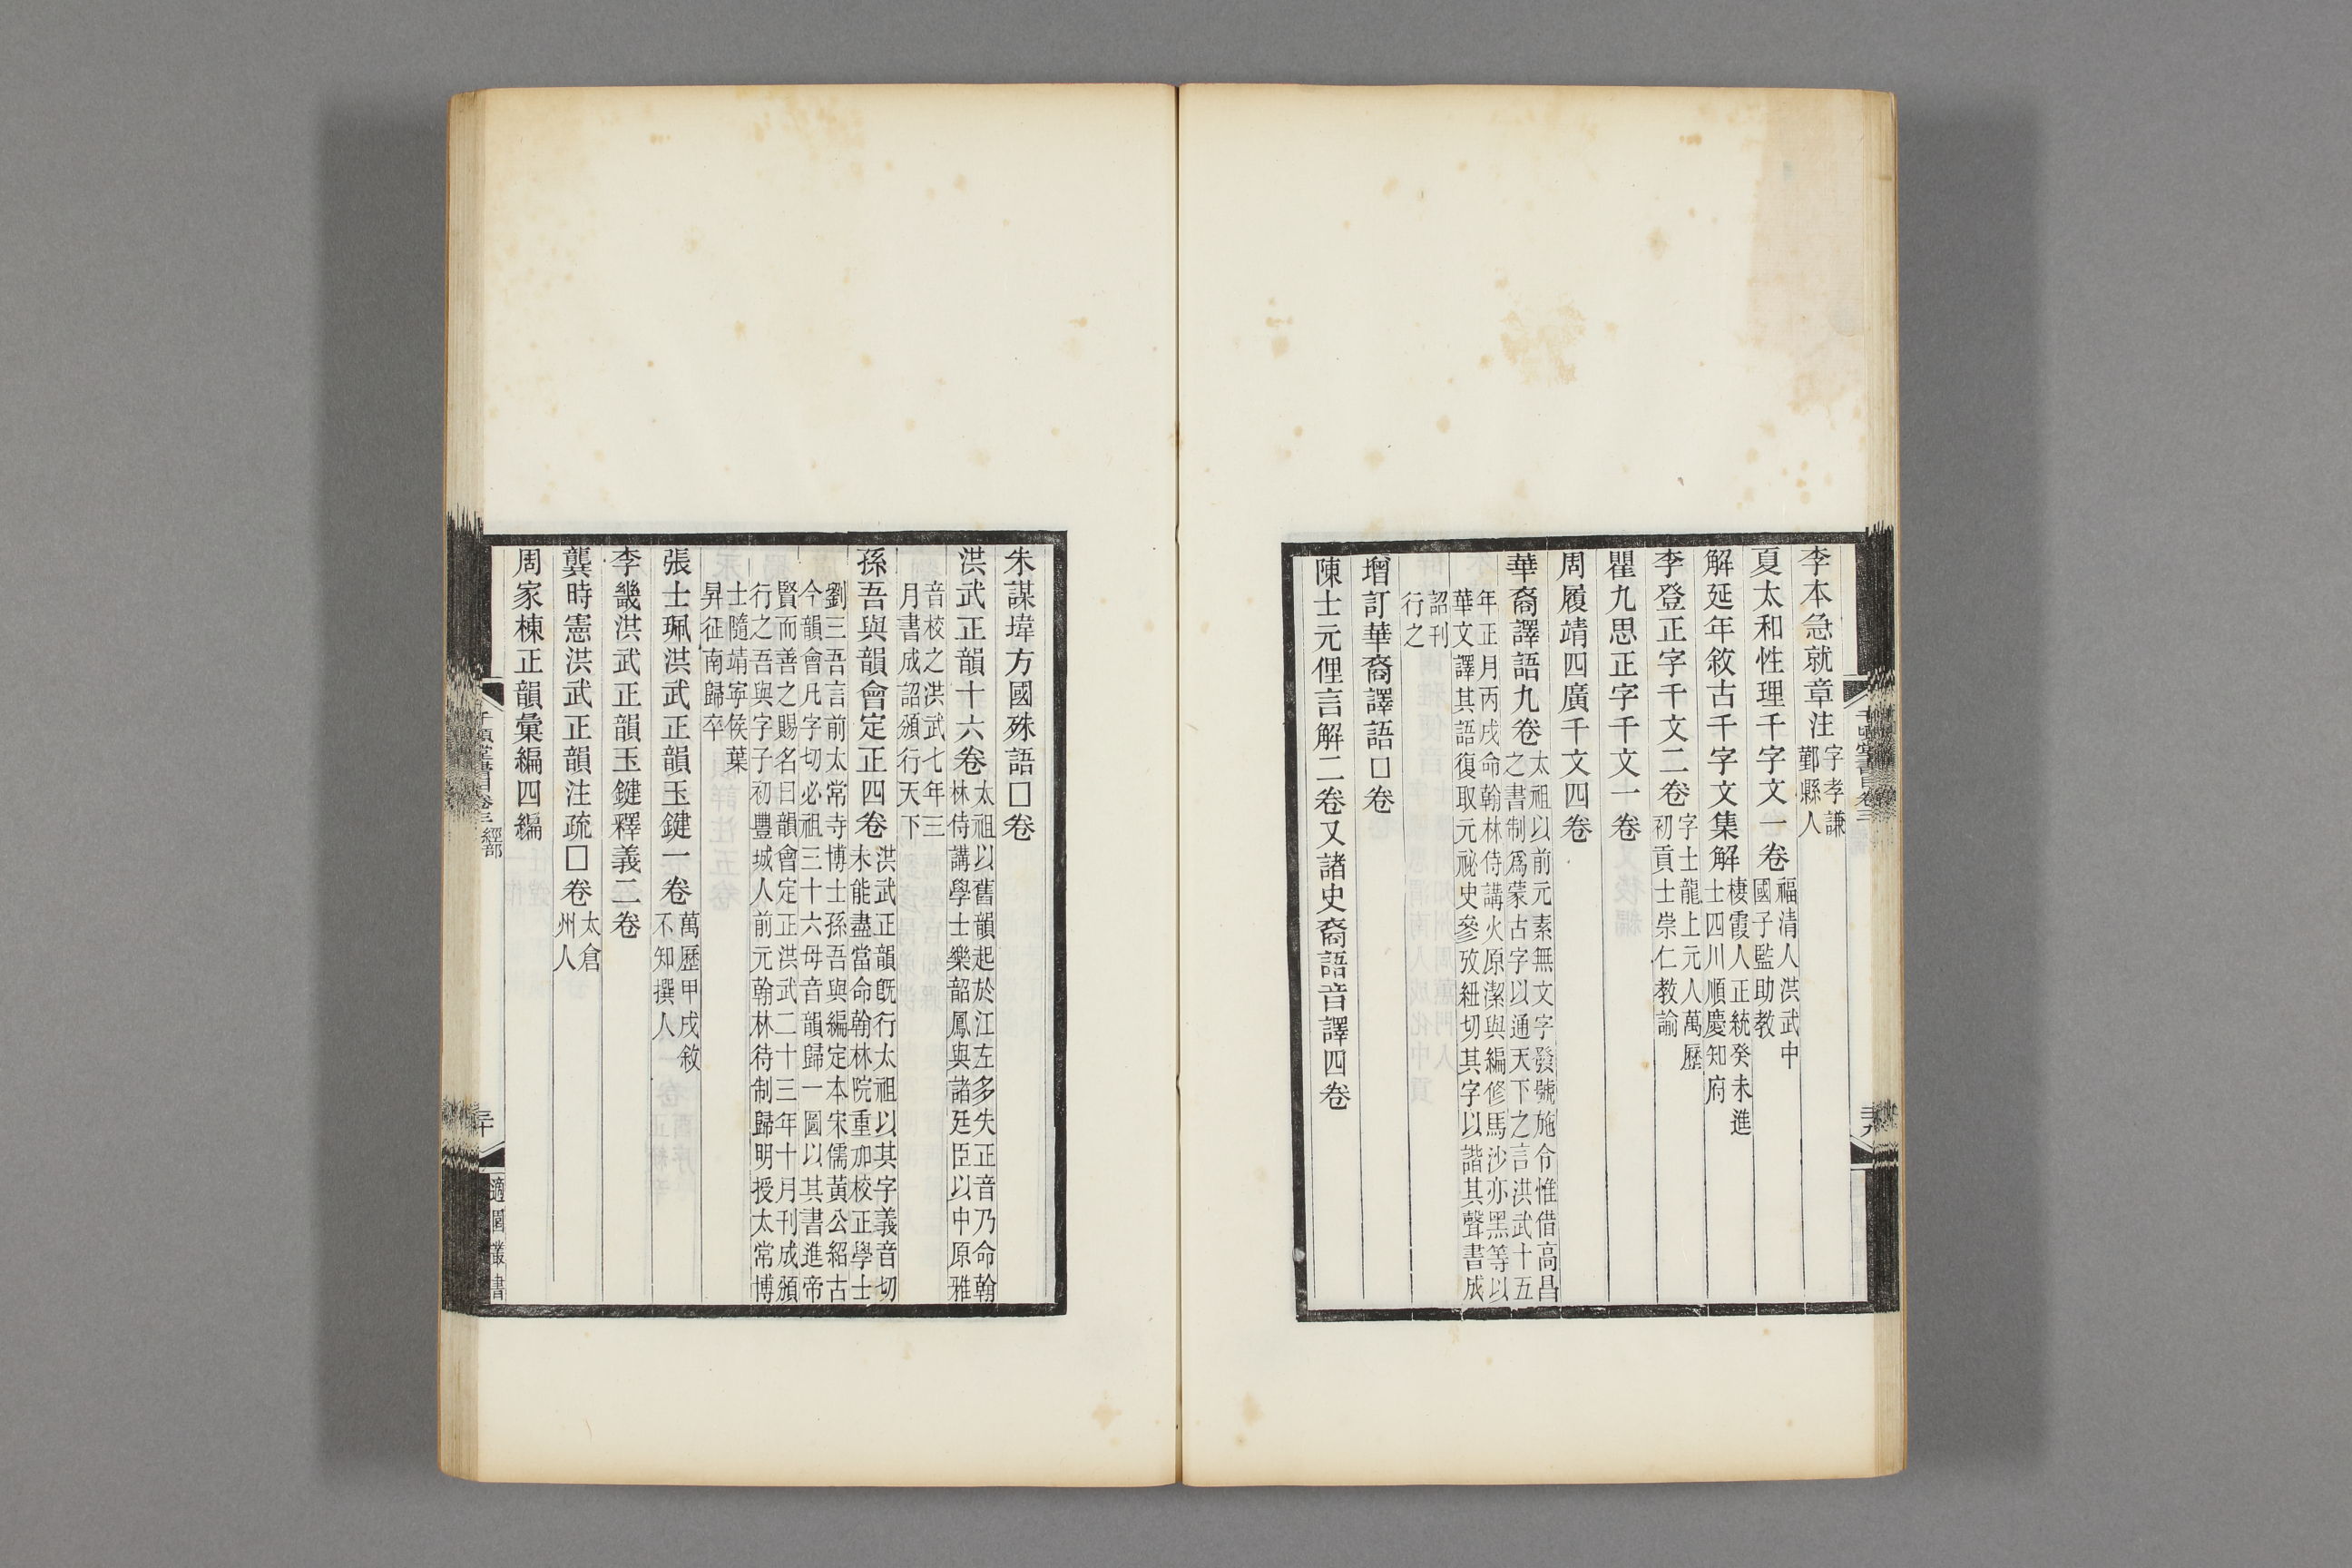 李本急就章注字孝謙鄞縣人
夏太和性理千字文一卷福清人洪武中國子監助教
解延年敘古千字文集解棲霞人正統癸未進士四川順慶知府
李登正字千文二卷字士龍上元人萬歷初貢士崇仁教諭
瞿九思正字千文一卷
周履靖四廣千文四卷
華裔譯語九卷太祖以前元素無文字發號施令惟借高昌之書制爲蒙古字以通天下之言洪武十五
年正月丙戌命翰林侍講火原潔與編修馬沙亦黑等以華文譯其語復取元祕史參攷紐切其字以諧其聲書成
詔刊行之
增訂華裔譯語□卷
陳士元俚言解二卷又諸史裔語音譯四卷
朱謀㙔方國殊語□卷
洪武正韻十六卷太祖以舊韻起於江左多失正音乃命翰林侍講學士樂韶鳳與諸廷臣以中原雅
音校之洪武七年三月書成詔頒行天下
孫吾與韻會定正四卷洪武正韻旣行太祖以其字義音切未能盡當命翰林院重加校正學士
劉三吾言前太常寺博士孫吾與編定本宋儒黃公紹古今韻會凡字切必祖三十六母音韻歸一圖以其書進帝
賢而善之賜名曰韻會定正洪武二十三年十月刊成頒行之吾與字子初豐城人前元翰林待制歸明授太常博
士隨靖寧侯葉昇征南歸卒
張士珮洪武正韻玉鍵一卷萬歷甲戌敘不知撰人
李畿洪武正韻玉鍵釋義二卷
龔時憲洪武正韻注疏□卷太倉州人
周家棟正韻彙編四編
千頃堂書目卷三 經部
三十
適園叢書